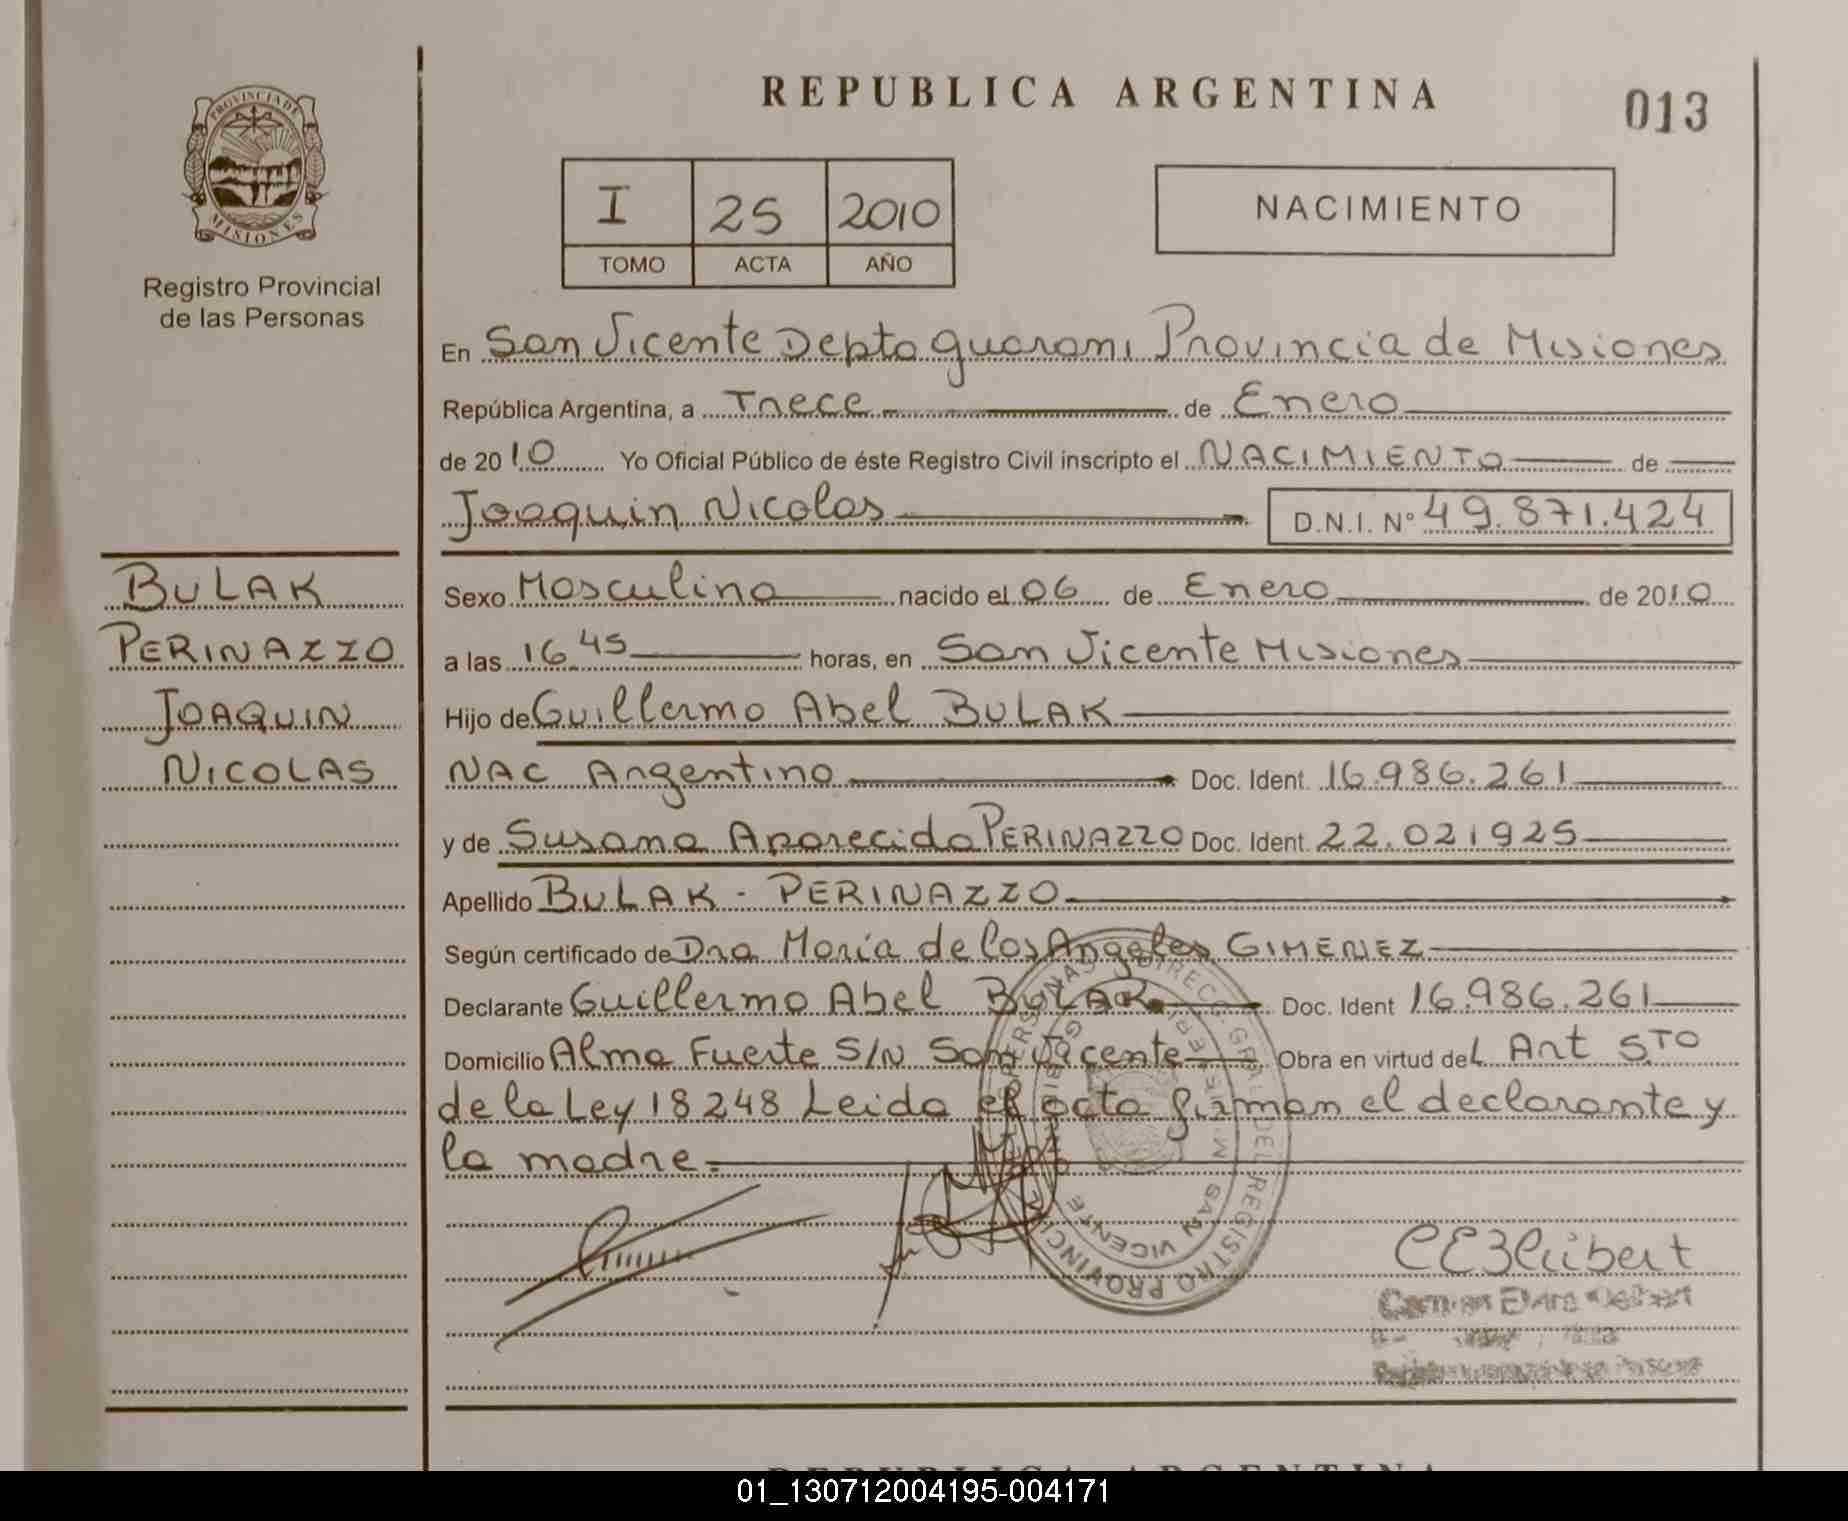 PROVINCIA DE
MISIONES
Registro Provincial
de las Personas
REPUBLICA ARGENTINA
013
I 25 2010
TOMO ACTA AÑO
NACIMIENTO
En San Vicente Depto Guarani Provincia de Misiones
República Argentina, a Trece de Enero
de 2010 Yo Oficial Público de éste Registro Civil inscripto el NACIMIENTO de
Joaquin Nicolas D.N.I. Nº 49.871.424
BULAK
PERINAZZO
JOAQUIN
NICOLAS
Sexo Masculino nacido el 06 de Enero de 2010
a las 16 45 horas, en San Vicente Misiones
Hijo de Guillermo Abel BULAK
NAC Argentino Doc. Ident. 16.986.261
y de Susana Aparecida PERINAZZO Doc. Ident. 22.021925
Apellido BULAK - PERINAZZO
Según certificado de Dra Maria de los Angeles GIMENEZ
Declarante Guillermo Abel BULAK Doc. Ident 16.986.261
Domicilio Alma Fuerte S/N San Vicente Obra en virtud del Art 5TO
de la Ley 18248 Leida el acta firman el declarante y
la madre.
DIRECC. GRAL DEL REGISTRO PROVINCIAL PERSONAS
SAN VICENTE
01_130712004195-004171